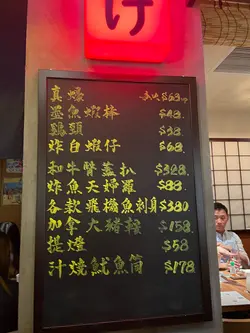 け
真蠔 $68
墨魚蝦棒 $48
鷄頸 $38
炸白蝦仔 $68
和牛臂蓋扒 $328
炸魚天婦羅 $88
各款飛機魚刺身 $380
加拿大豬鞍 $158
提燈 $58
汁燒魷魚筒 $178